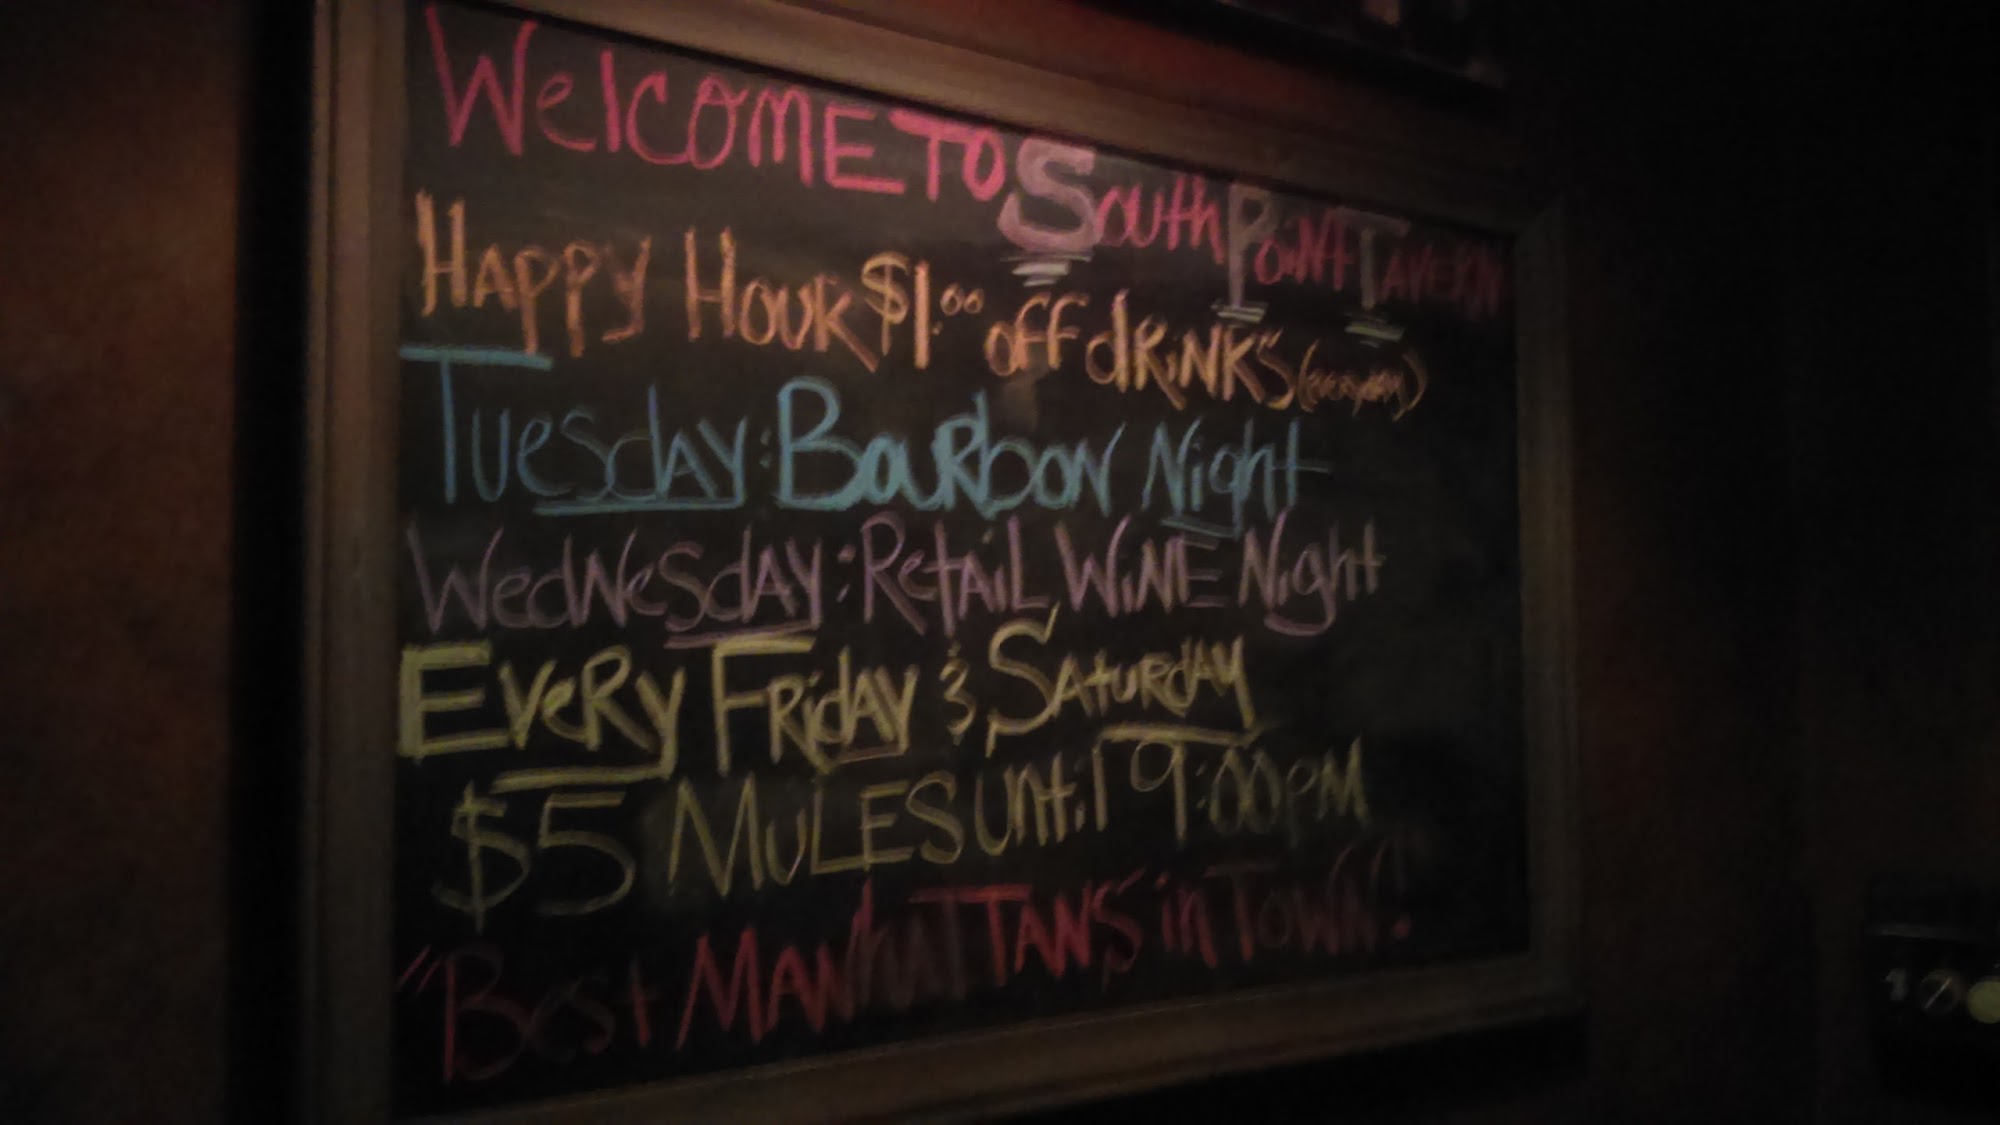 Welcome To South Point Tavern
Happy Hour $1.00 off drinks (everyday)
Tuesday: Bourbon Night
Wednesday: Retail Wine Night
Every Friday & Saturday
$5 Mules until 9:00pm
"Best Manhattans in Town!"